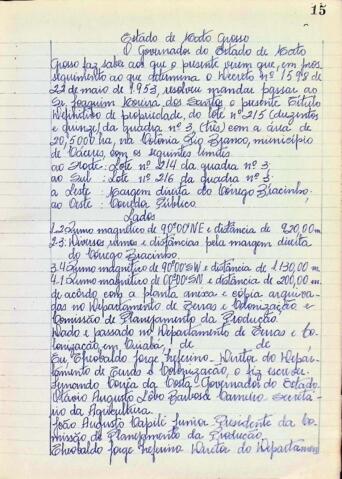 15
Estado de Mato Grosso
O Governador do Estado de Mato
Grosso faz saber aos que o presente virem que, em pros
seguimento ao que determina o Decreto nº 1598 de
22 de maio de 1953, resolveu mandar passar ao
Sr. Joaquim Moura dos Santos o presente Título
Definitivo de propriedade, do lote nº 215 (duzentos
e quinze) da quadra nº 3, (três) com a área de
20,5000 ha, na Colonia Rio Branco, município
de Cáceres, com os seguintes limites
ao Norte: Lote nº 214 da quadra nº 3;
ao Sul: Lote nº 216 da quadra nº 3;
a Leste: Margem direita do Corrego Bracinho.
ao Oeste: Corredor Público
Lados
1.2: Rumo magnético de 90º00'NE e distância de 920,00 m
2-3: Diversos rumos e distâncias pela margem direita
do Corrego Bracinho.
3.4: Rumo magnético de 90º00'SW e distância de 1.130,00 m
4.1: Rumo magnético de 00º00'SN e distância de 200,00 m,
de acordo com a planta anexa e cópia arquiva-
das no Departamento de Terras e Colonização e
Comissão de Planejamento da Produção.
Dado e passado no Departamento de Terras e Co-
lonização em Cuiabá, de de
Eu, Theobaldo Jorge Diretor do Depar-
tamento de Terras e Colonização, o fiz escrever.
Fernando Corrêa da Costa - Governador do Estado
Otávio Augusto Lobo Barbosa Carneiro Secretá-
rio da Agricultura.
João Augusto Capilé Junior Presidente da Co-
missão de Planejamento da Produção.
Theobaldo Jorge Diretor do Departamen